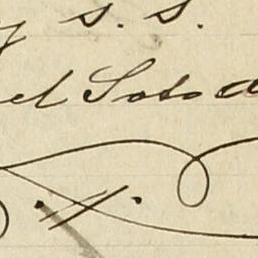 y S. S.
el Soto d